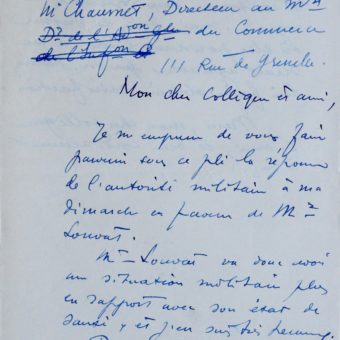 Mr Chaumet, Directeur au Mre
Dr de l'A du Commerce
111 Rue de Grenelle.
Mon cher Collègue et ami,
Je m'empresse de vous faire
parvenir sous ce pli la réponse
de l'autorité militaire à ma
démarche en faveur de Mr
Louvat.
Mr Louvat va donc avoir
une situation militaire plus
en rapport avec son état de
santé, et j'en suis très heureux.